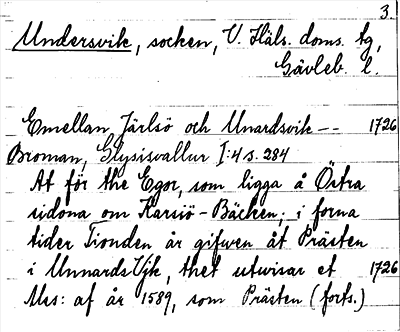 3.
Undersvik, socken, V. Häls. doms. tg,
Gävleb. l.
Emellan Järlsö och Unardsvik -- 1726
Broman, Glysisvallur I:4 s. 284
At för the Egor, som ligga å Östra
sidona om Karsiö-Bäcken; i forna
tider Tionden är gifwen åt Prästen
i UnnardsVjk, thet utwisar et 1726
Mss: af år 1589, som Prästen (forts.)